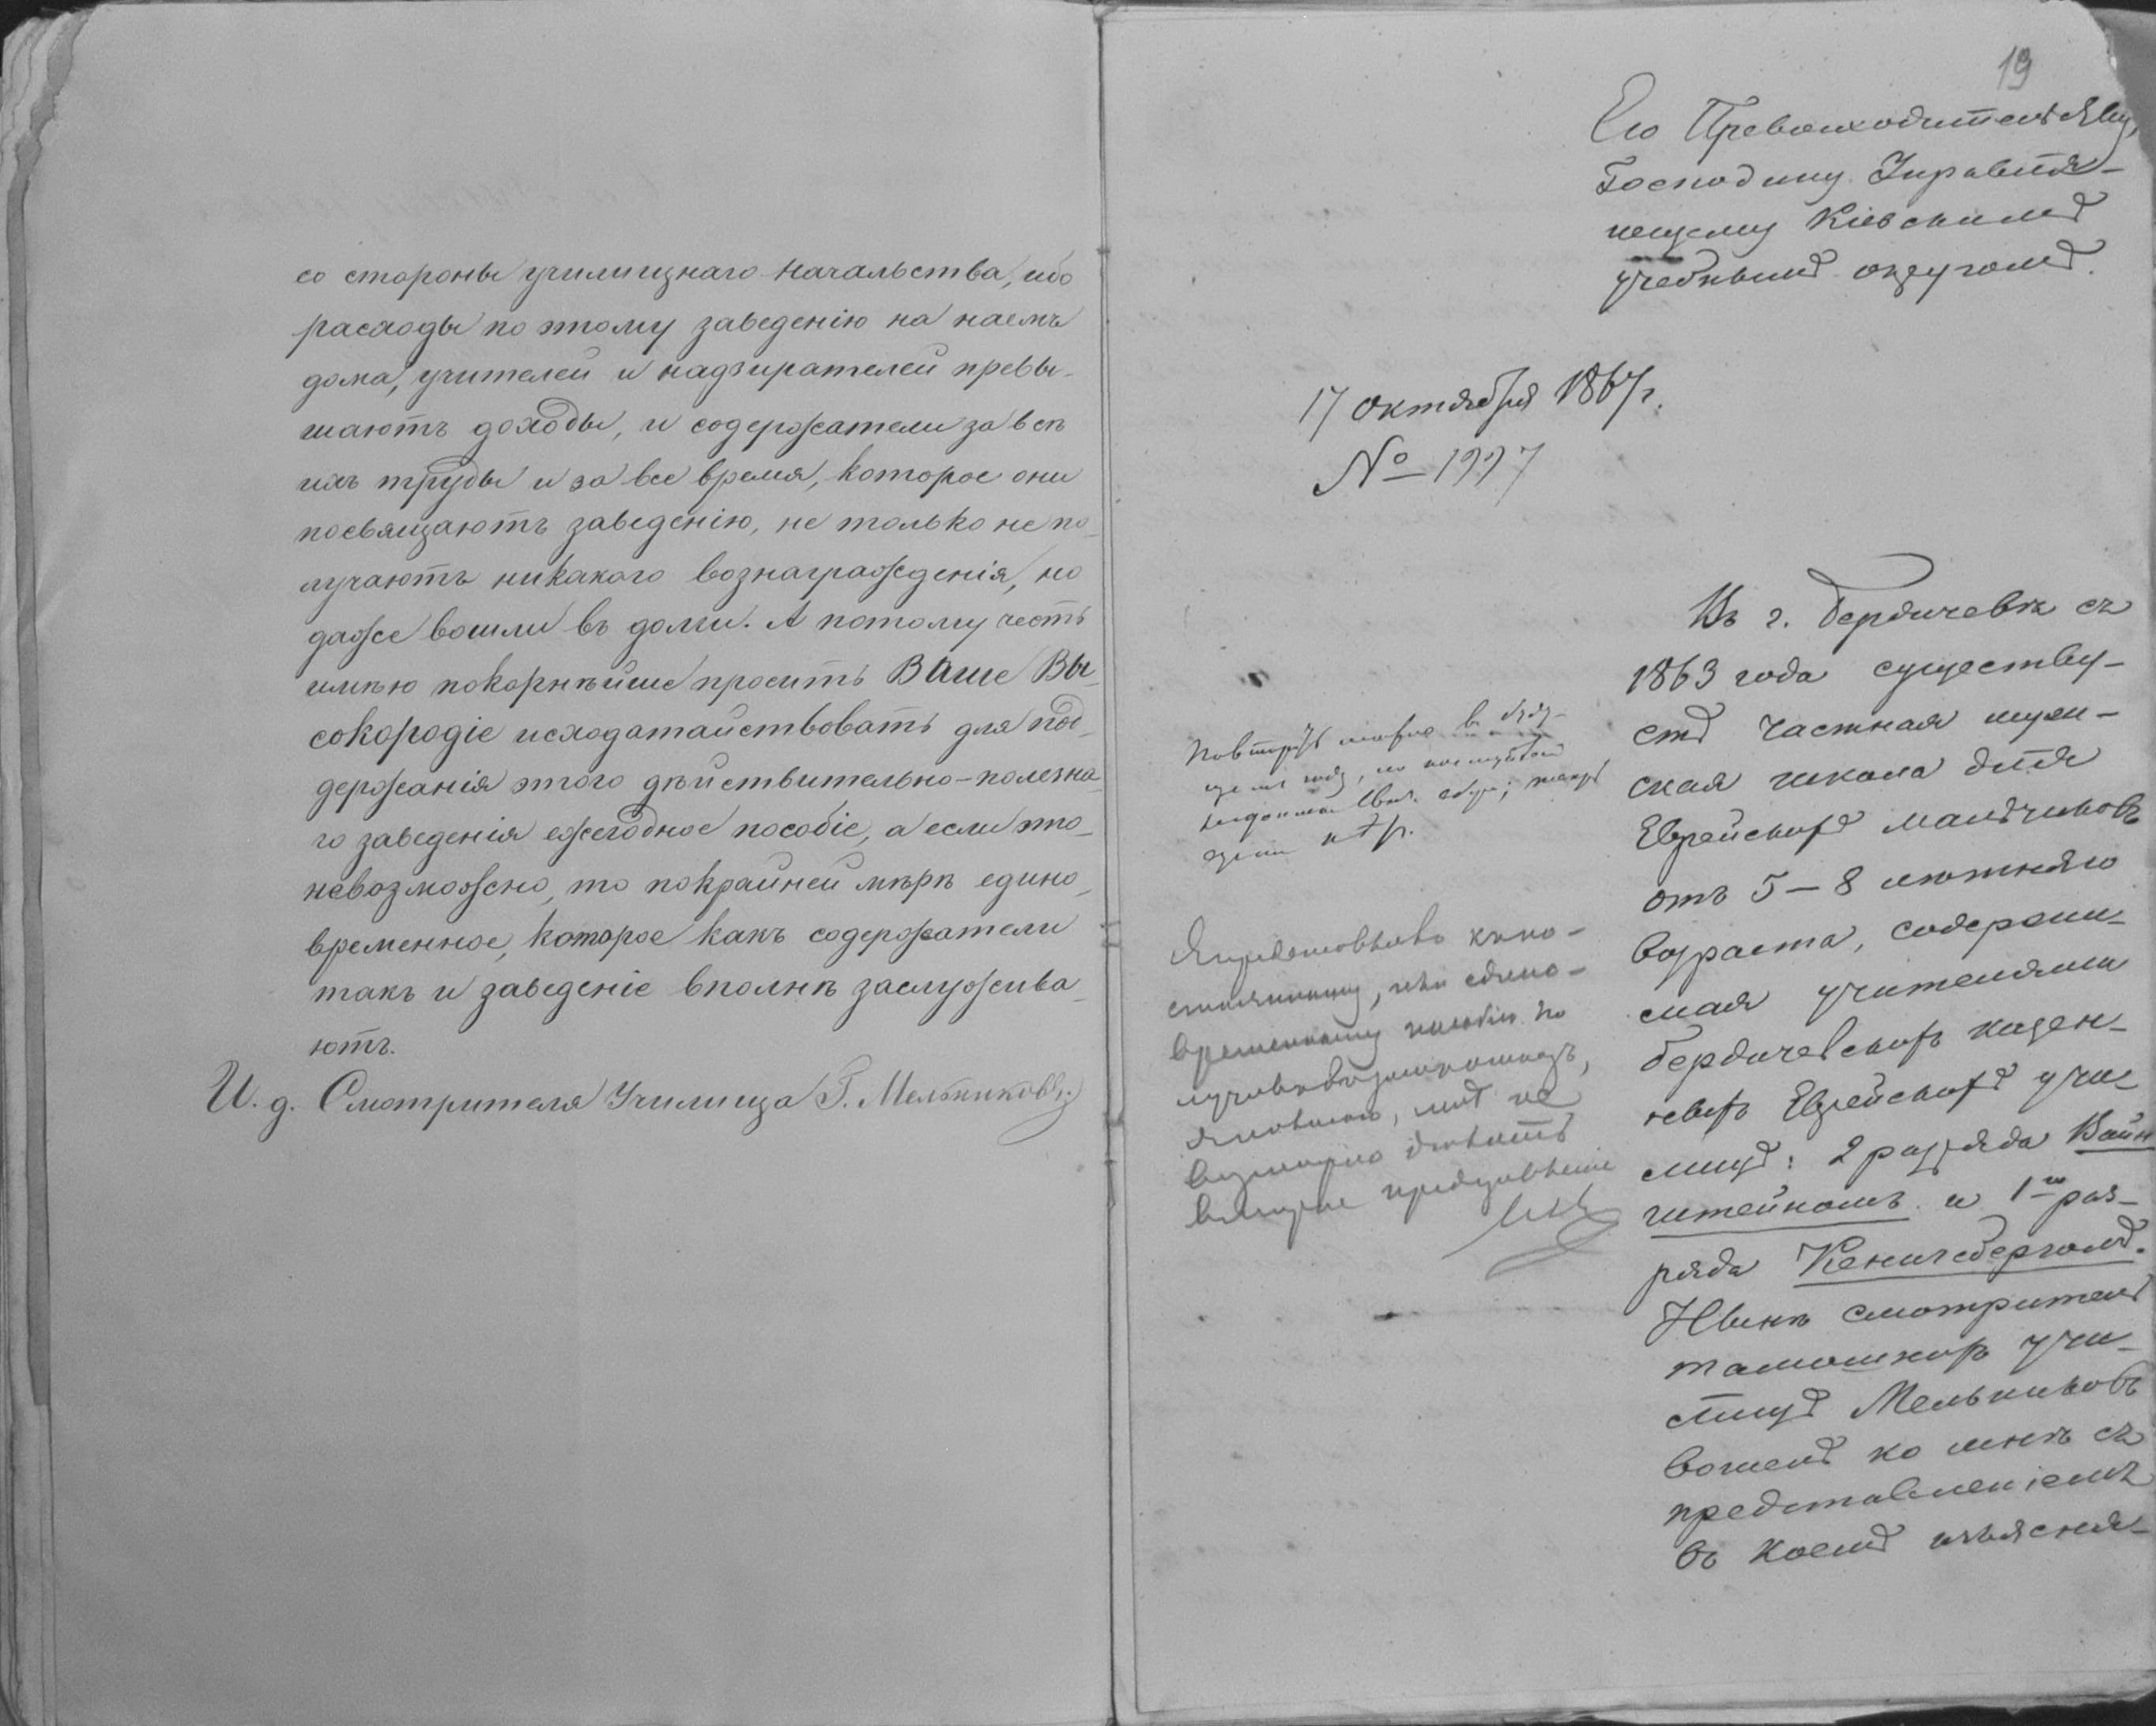 со стороны училищнаго начальства, ибо
расходы по этому заведенію на наемъ
дома, учителей и надзирателей превы-
шаютъ доходы, и содержатели за всѣ
ихъ труды и за все время, которое они
посвящаютъ заведенію, не только не по-
лучаютъ никакого вознагражденія, но
даже вошли въ долги. А потому честь
имѣю покорнѣйше просить Ваше Вы-
сокородіе исходатайствовать для под-
держанія этого дѣйствительно-полезна-
го заведенія ежегодное пособіе, а если это
невозможно, то покрайней мѣрѣ едино-
временное, которое какъ содержатели
такъ и заведеніе вполнѣ заслужива-
ютъ.
И. д. Смотрителя Училища Г. Мельниковъ
19
Его Превосходительству,
Господину Управля-
ющему Кіевскимъ
учебнымъ округомъ.
17 октября 1867 г.
№ 1997
Въ г. Бердичевѣ съ
1863 года существу-
етъ частная муж-
ская школа для
Еврейскихъ мальчиковъ
отъ 5-8 лѣтняго
возраста, содержи-
мая учителями
бердичевскихъ казен-
ныхъ Еврейскихъ учи-
лищъ: 2 разряда Вайн-
штейномъ и 1го раз-
ряда Кенигсбергомъ.
Нынѣ смотритель
тамошнихъ учи-
лищъ Мельниковъ
вошелъ ко мнѣ съ
представленіемъ
въ коемъ изъясня-
въ буду-
щемъ году, по
едино-
временному пособію по